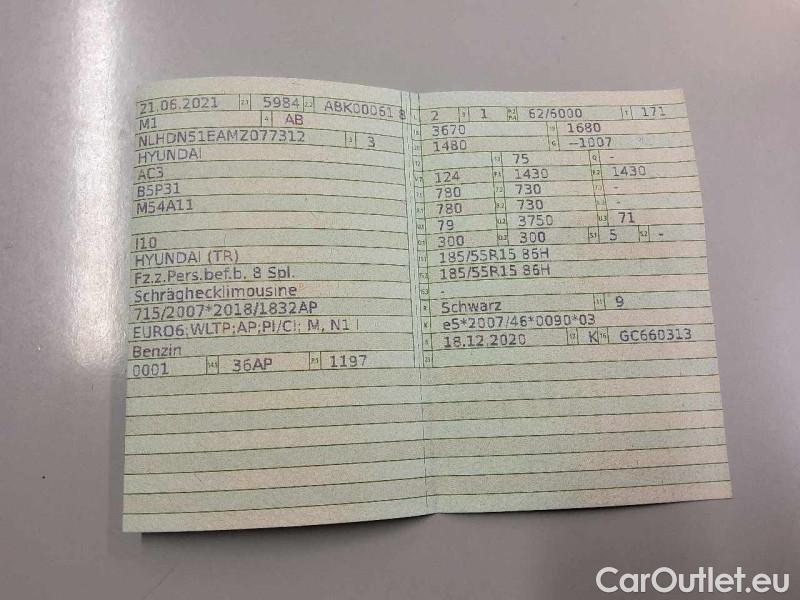 21.06.2021 2.1 5984 2.2 ABK00061 8
M1 4 AB
NLHDN51EAMZ077312 3 3
HYUNDAI
AC3
B5P31
M54A11
I10
HYUNDAI (TR)
Fz.z.Pers.bef.b. 8 Spl.
Schräghecklimousine
715/2007*2018/1832AP
EURO6;WLTP;AP;PI/CI; M, N1 I
Benzin
0001 14.1 36AP P.1 1197
L 2 9 1 P.2 P.4 62/6000 T 171
18 3670 19 1680
20 1480 G --1007
12 - 13 75 Q -
V.7 124 F.1 1430 F.2 1430
7.1 780 7.2 730 7.3 -
8.1 780 8.2 730 8.3 -
U.1 79 U.2 3750 U.3 71
O.1 300 O.2 300 S.1 5 S.2 -
15.1 185/55R15 86H
15.2 185/55R15 86H
15.3 -
R Schwarz 11 9
K e5*2007/46*0090*03
6 18.12.2020 17 K 16 GC660313
21
CarOutlet.eu